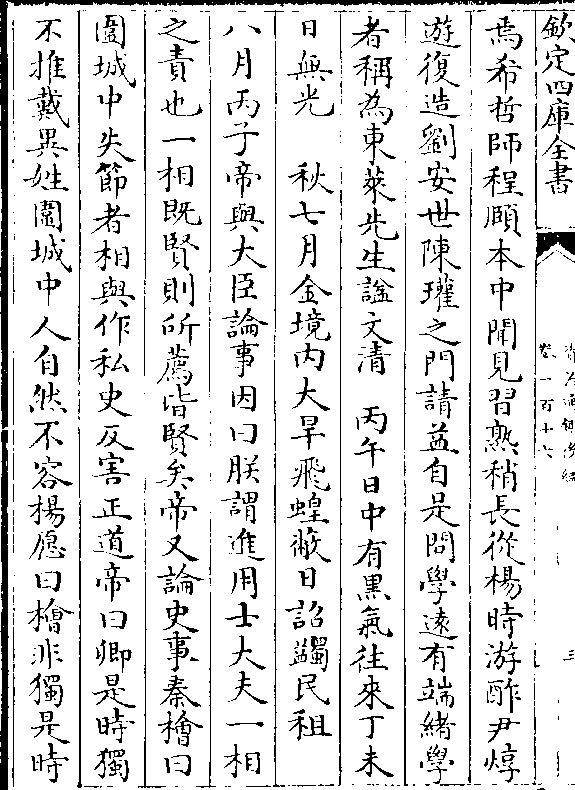 欽定四庫全書
卷一百十六
三
焉希哲師程頤本中聞見習熟稍長從楊時游酢尹焞
遊復造劉安世陳瓘之門請益自是問學遠有端緒學
者稱為東萊先生諡文清　丙午日中有黑氣往來丁未
日無光　秋七月金境內大旱飛蝗蔽日詔蠲民租
八月丙子帝與大臣論事因曰朕謂進用士大夫一相
之責也一相既賢則所薦皆賢矣帝又論史事秦檜曰
圍城中失節者相與作私史反害正道帝曰卿是時獨
不推戴異姓圍城中人自然不容楊愿曰檜非獨是時